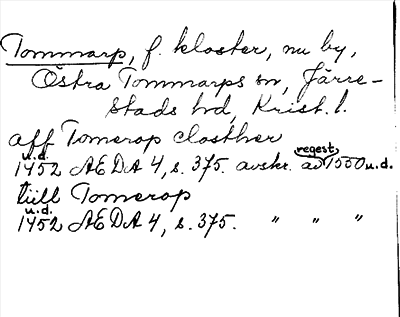 Tommarp, f. kloster, nu by,
Östra Tommarps sn, Järre-
stads hd, Krist. l.
aff Tomerop closther
u.d.
1452 ÆDA 4, s. 375. avskr. av regest 1550 u.d.
tiill Tomerop
u.d.
1452 ÆDA 4, s. 375. " " "